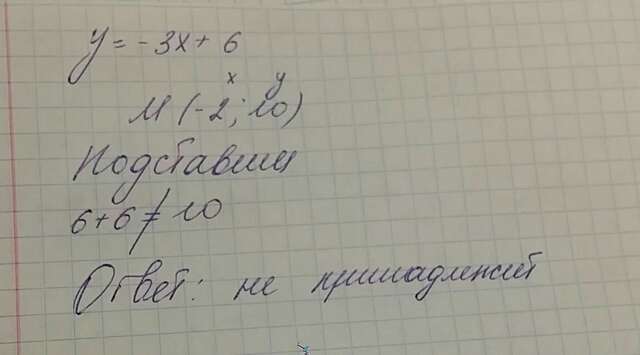 y = -3x + 6
x y
M (-2; 10)
Подставим
6+6 ≠ 10
Ответ: не принадлежит